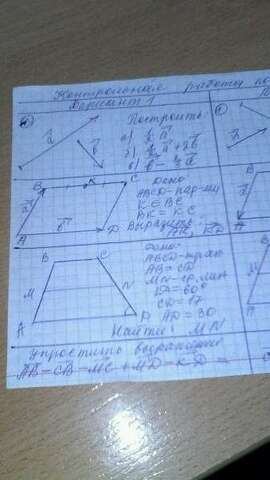 Контрольная работу по
Вариант 1
Построить
а) ½ a
б) ½ a + 2b
в) b - ½ a
a
b
B
K
C
a
b
A
D
Дано
ABCD - пар-мм
K ∈ BC
BK = KC
Выразить
AK, KD
B
C
M
N
A
D
Дано:
ABCD - трап
AB = CD
MN - ср. лин
A = 60°
CD = 17
AD = 30
Найти: MN
Упростить выражение
AB - CB - MC + MD - KD =